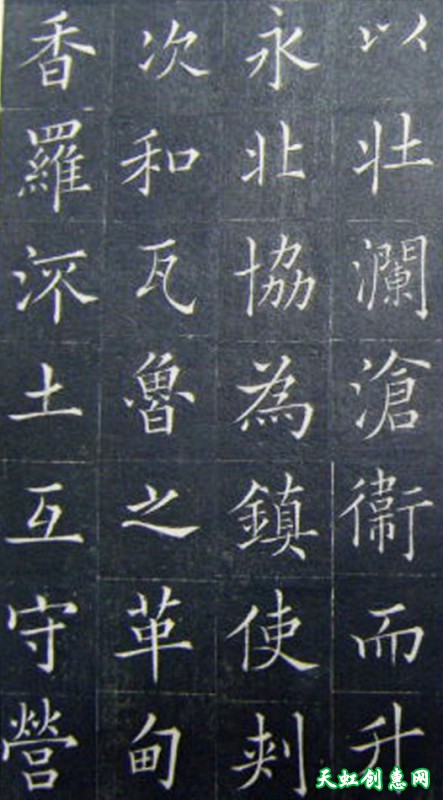 以壮瀾滄衛而升
永北協為鎮使刾
次和瓦魯之革甸
香羅㳅土互守營
天虹创惠网